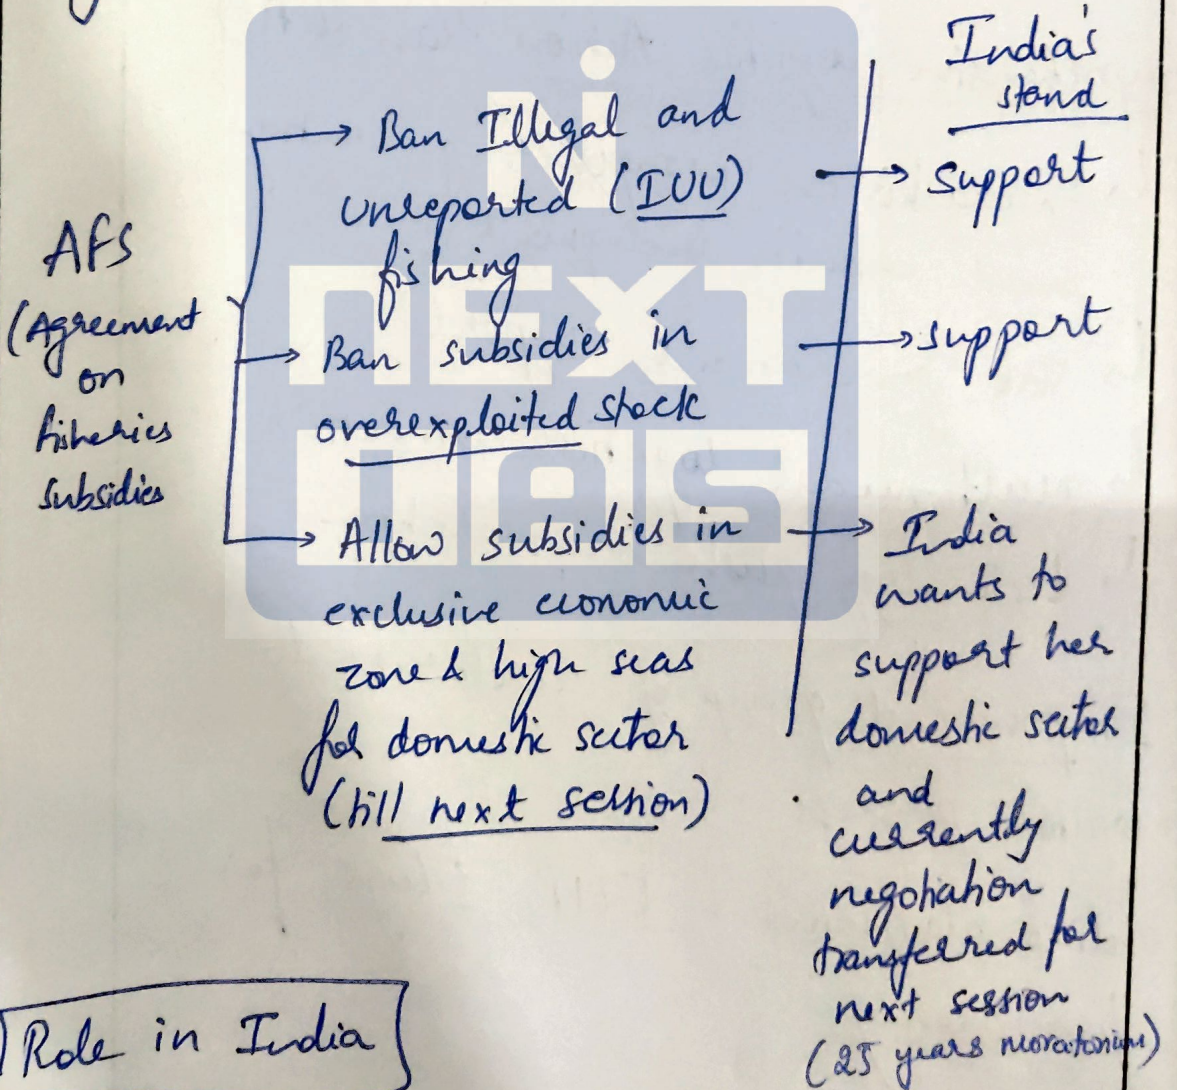 AFS
(Agreement
on
fisheries
subsidies
Ban Illegal and
unreported (IUU)
fishing
Ban subsidies in
overexploited stock
Allow subsidies in
exclusive economic
zone & high seas
for domestic sector
(till next session)
India's
stand
support
support
India
wants to
support her
domestic sector
and
currently
negotiation
transferred for
next session
(25 years moratorium)
Role in India
NEXT
IAS